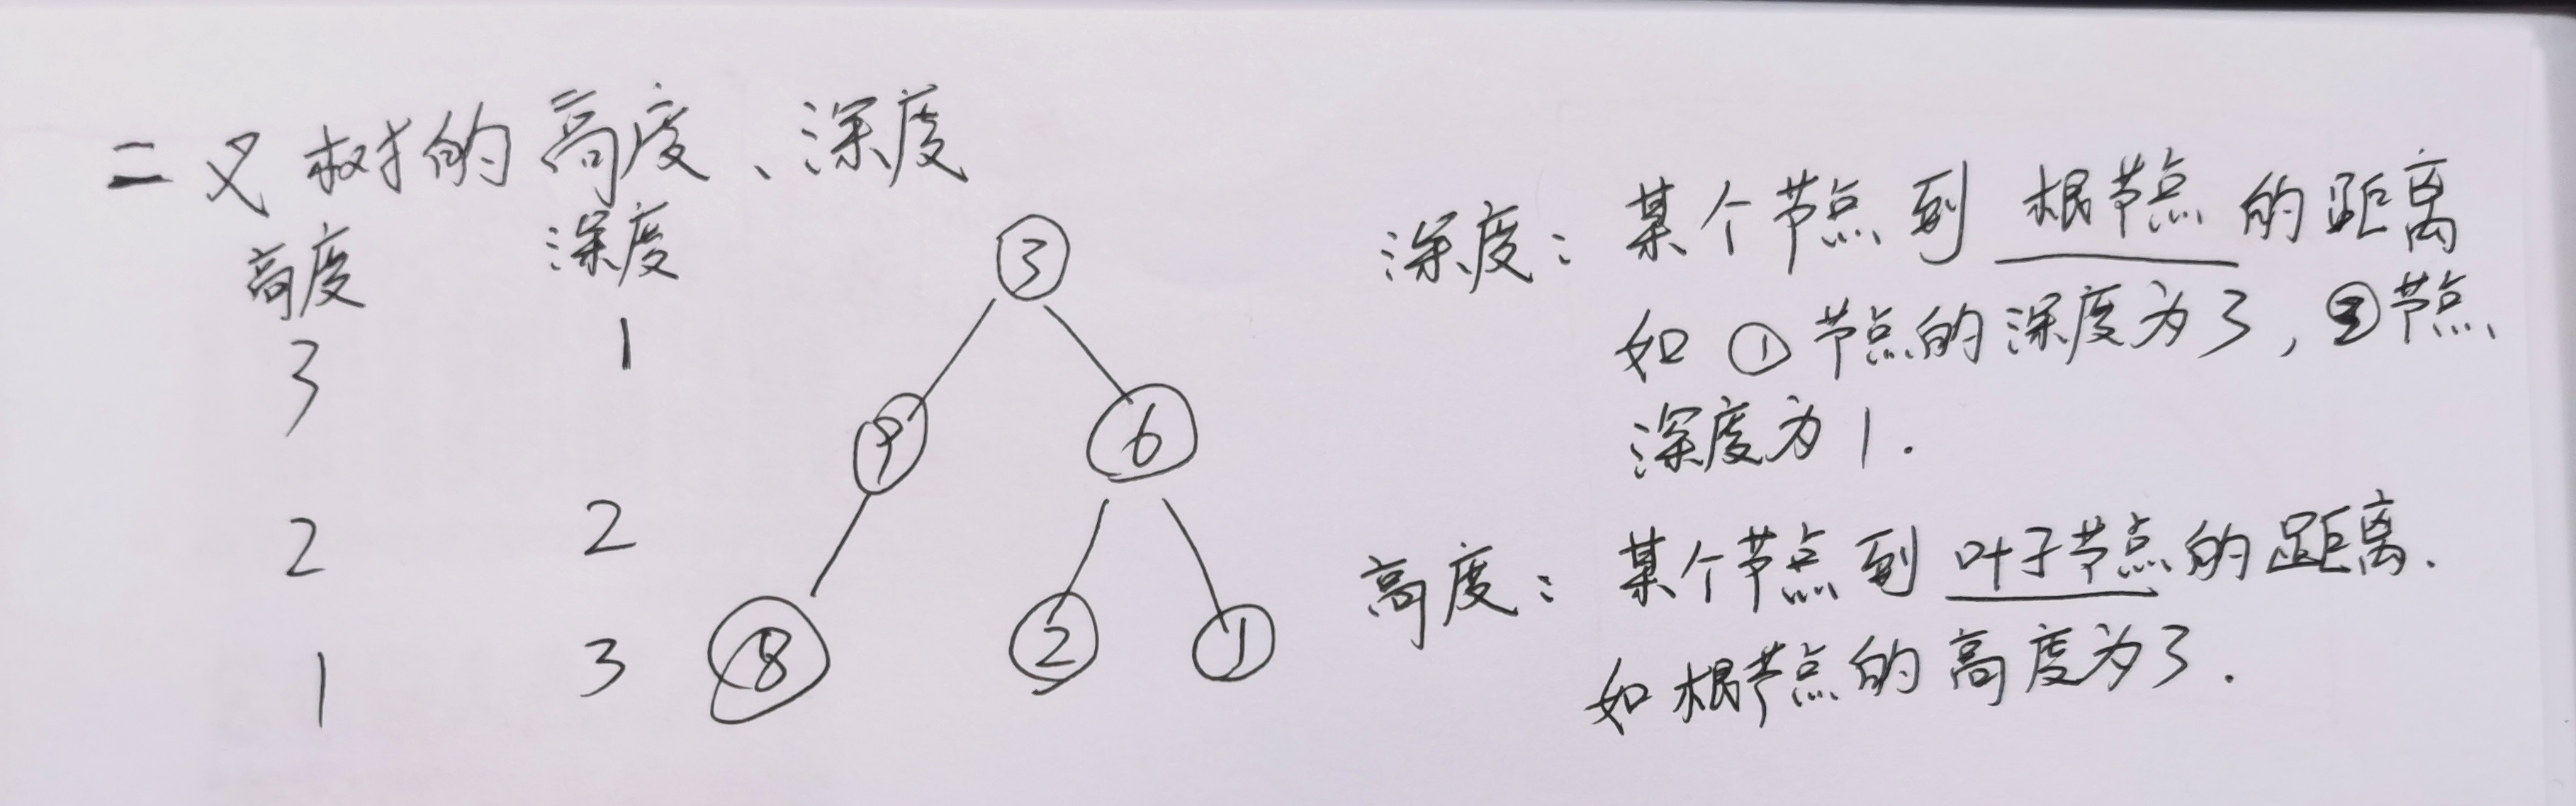 二叉树的高度、深度
高度 深度
3 1
2 2
1 3
3
9 6
8 2 1
深度：某个节点到根节点的距离
如①节点的深度为3，③节点
深度为1.
高度：某个节点到叶子节点的距离.
如根节点的高度为3.